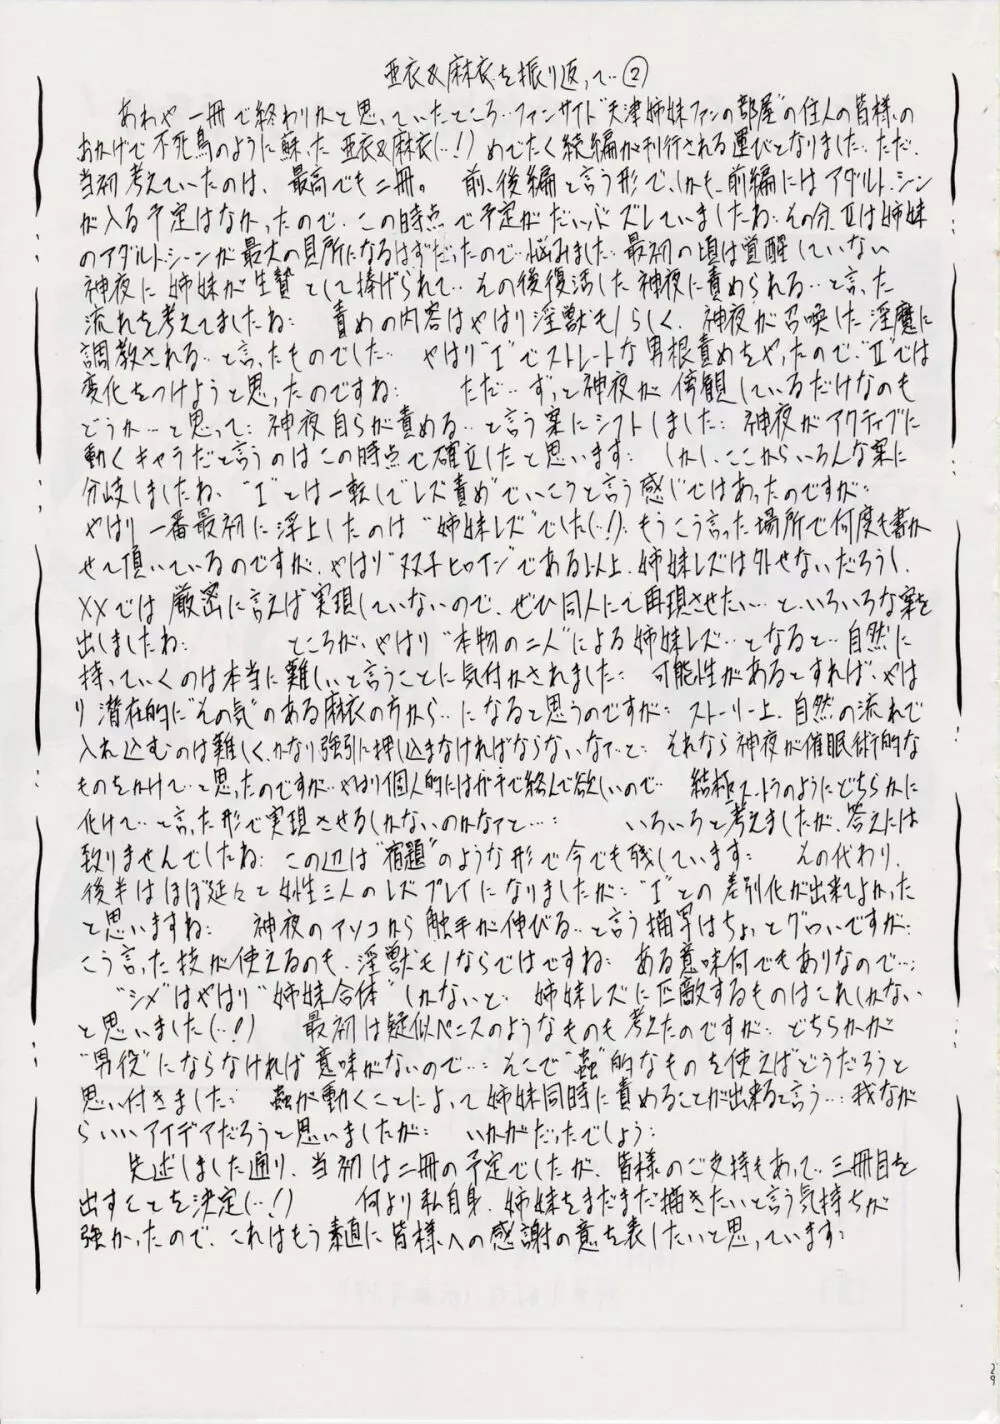 亜衣&麻衣を振り返って‥②
あわや一冊で終わりかと思っていたところ‥ファンサイト"天津姉妹ファンの部屋"の住人の皆様の
おかげで不死鳥のように蘇った亜衣&麻衣(‥!) めでたく続編が刊行される運びとなりました‥ただ、
当初考えていたのは、最高でも二冊。 前、後編と言う形で、しかも、前編にはアダルト・シーン
が入る予定はなかったので、この時点で予定がだいぶズレていましたね‥その分、Ⅱは姉妹
のアダルト・シーンが最大の見所になるはずだったので‥悩みました‥最初の頃は覚醒していない
神夜に姉妹が生贄として捧げられて‥その後復活した神夜に責められる‥と言った
流れを考えてましたね‥ 責めの内容はやはり淫獣モノらしく、神夜が召喚した淫魔に
調教される‥と言ったものでした‥ やはり"Ⅰ"でストレートな男根責めをやったので、"Ⅱ"では
変化をつけようと思ったのですね‥ ただ‥ずっと神夜が傍観しているだけなのも
どうか‥と思って‥神夜自らが責める‥と言う案にシフトしました‥神夜がアクティブに
動くキャラだと言うのはこの時点で確立したと思います‥ しかし、ここからいろんな案に
分岐しましたね、"Ⅰ"とは一転して"レズ責め"でいこうと言う感じではあったのですが‥
やはり一番最初に浮上したのは"姉妹レズ"でした(‥!)‥もうこう言った場所で何度も書か
せて頂いているのですが、やはり"双子ヒロイン"である以上、姉妹レズは外せないだろうし、
XXでは厳密に言えば実現していないので、ぜひ同人にて再現させたい‥と、いろいろな案を
出しましたね‥ ところが、やはり"本物の二人"による姉妹レズ‥となると‥自然に
持っていくのは本当に難しいと言うことに気付かされました‥ 可能性があるとすれば、やは
り潜在的に"その気"のある麻衣の方から‥になると思うのですが‥ ストーリー上、自然の流れで
入れ込むのは難しく、かなり強引に押し込まなければならないなァ‥と‥ それなら神夜が催眠術的な
ものをかけて‥と思ったのですが‥やはり個人的にはガチで絡んで欲しいので‥ 結極ストラのようにどちらかに
化けて‥と言った形で実現させるしかないのかなァと‥‥ いろいろと考えましたが、答えには
至りませんでしたね‥この辺は"宿題"のような形で今でも残しています‥ その代わり、
後半はほぼ延々と女性三人のレズプレイになりましたが‥"Ⅰ"との差別化が出来てよかった
と思いますね‥ 神夜のアソコから触手が伸びる‥と言う描写はちょっとグロいですが‥
こう言った技が使えるのも、淫獣モノならではですね‥ ある意味何でもありなので‥‥
"シメ"はやはり"姉妹合体"しかないと‥ 姉妹レズに匹敵するものはこれしかない
と思いました(‥!) 最初は疑似ペニスのようなものも考えたのですが‥どちらかが
"男役"にならなければ意味がないので‥‥そこで"蟲"的なものを使えばどうだろうと
思い付きました‥ 蟲が動くことによって姉妹同時に責めることが出来ると言う‥‥我なが
らいいアイデアだろうと思いましたが‥ いかがだったでしょう‥
先述しました通り、当初は二冊の予定でしたが、皆様のご支持もあって、三冊目を
出すことを決定(‥!) 何より私自身、姉妹をまだまだ描きたいと言う気持ちが
強かったので、これはもう素直に皆様への感謝の意を表したいと思っています‥
29